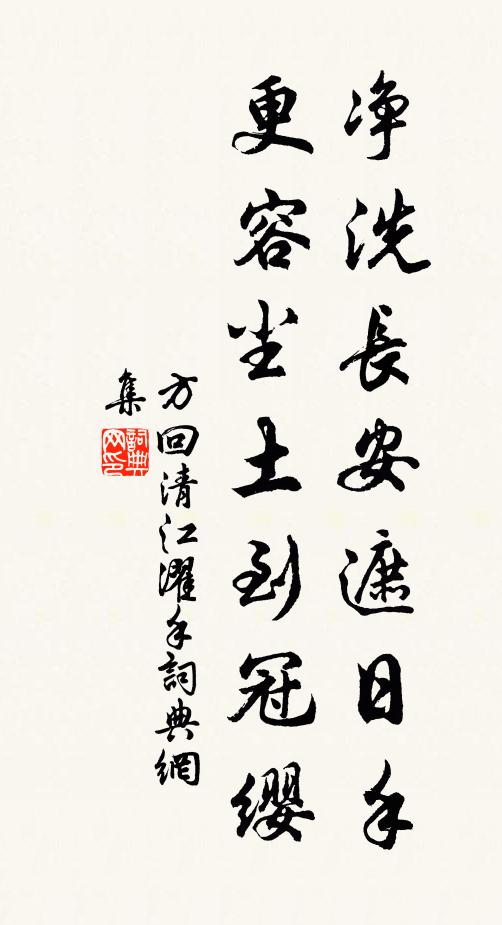 净洗長安遮日手
更容尘土到冠纓
方回清江濯手詞典網
集
詞典
网印